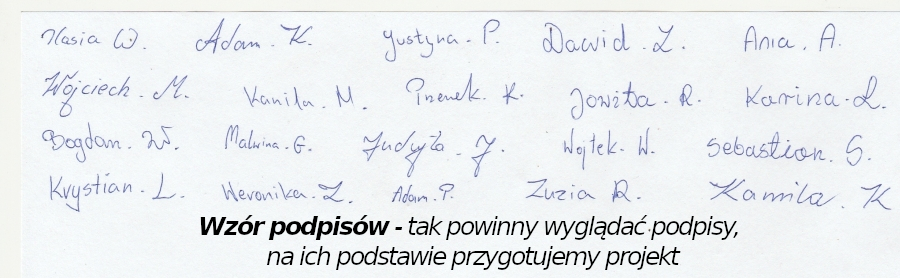 Kasia W. Adam. K. Justyna. P. Dawid. Z. Ania. A.
Wojciech. M. Kamila. M. Przemek. K. Jowita. R. Karina. L.
Bogdan. W. Malwina. G. Judyta. J. Wojtek. W. Sebastian. S.
Krystian. L. Weronika. Z. Adam. P. Zuzia R. Kamila. K
Wzór podpisów - tak powinny wyglądać podpisy,
na ich podstawie przygotujemy projekt